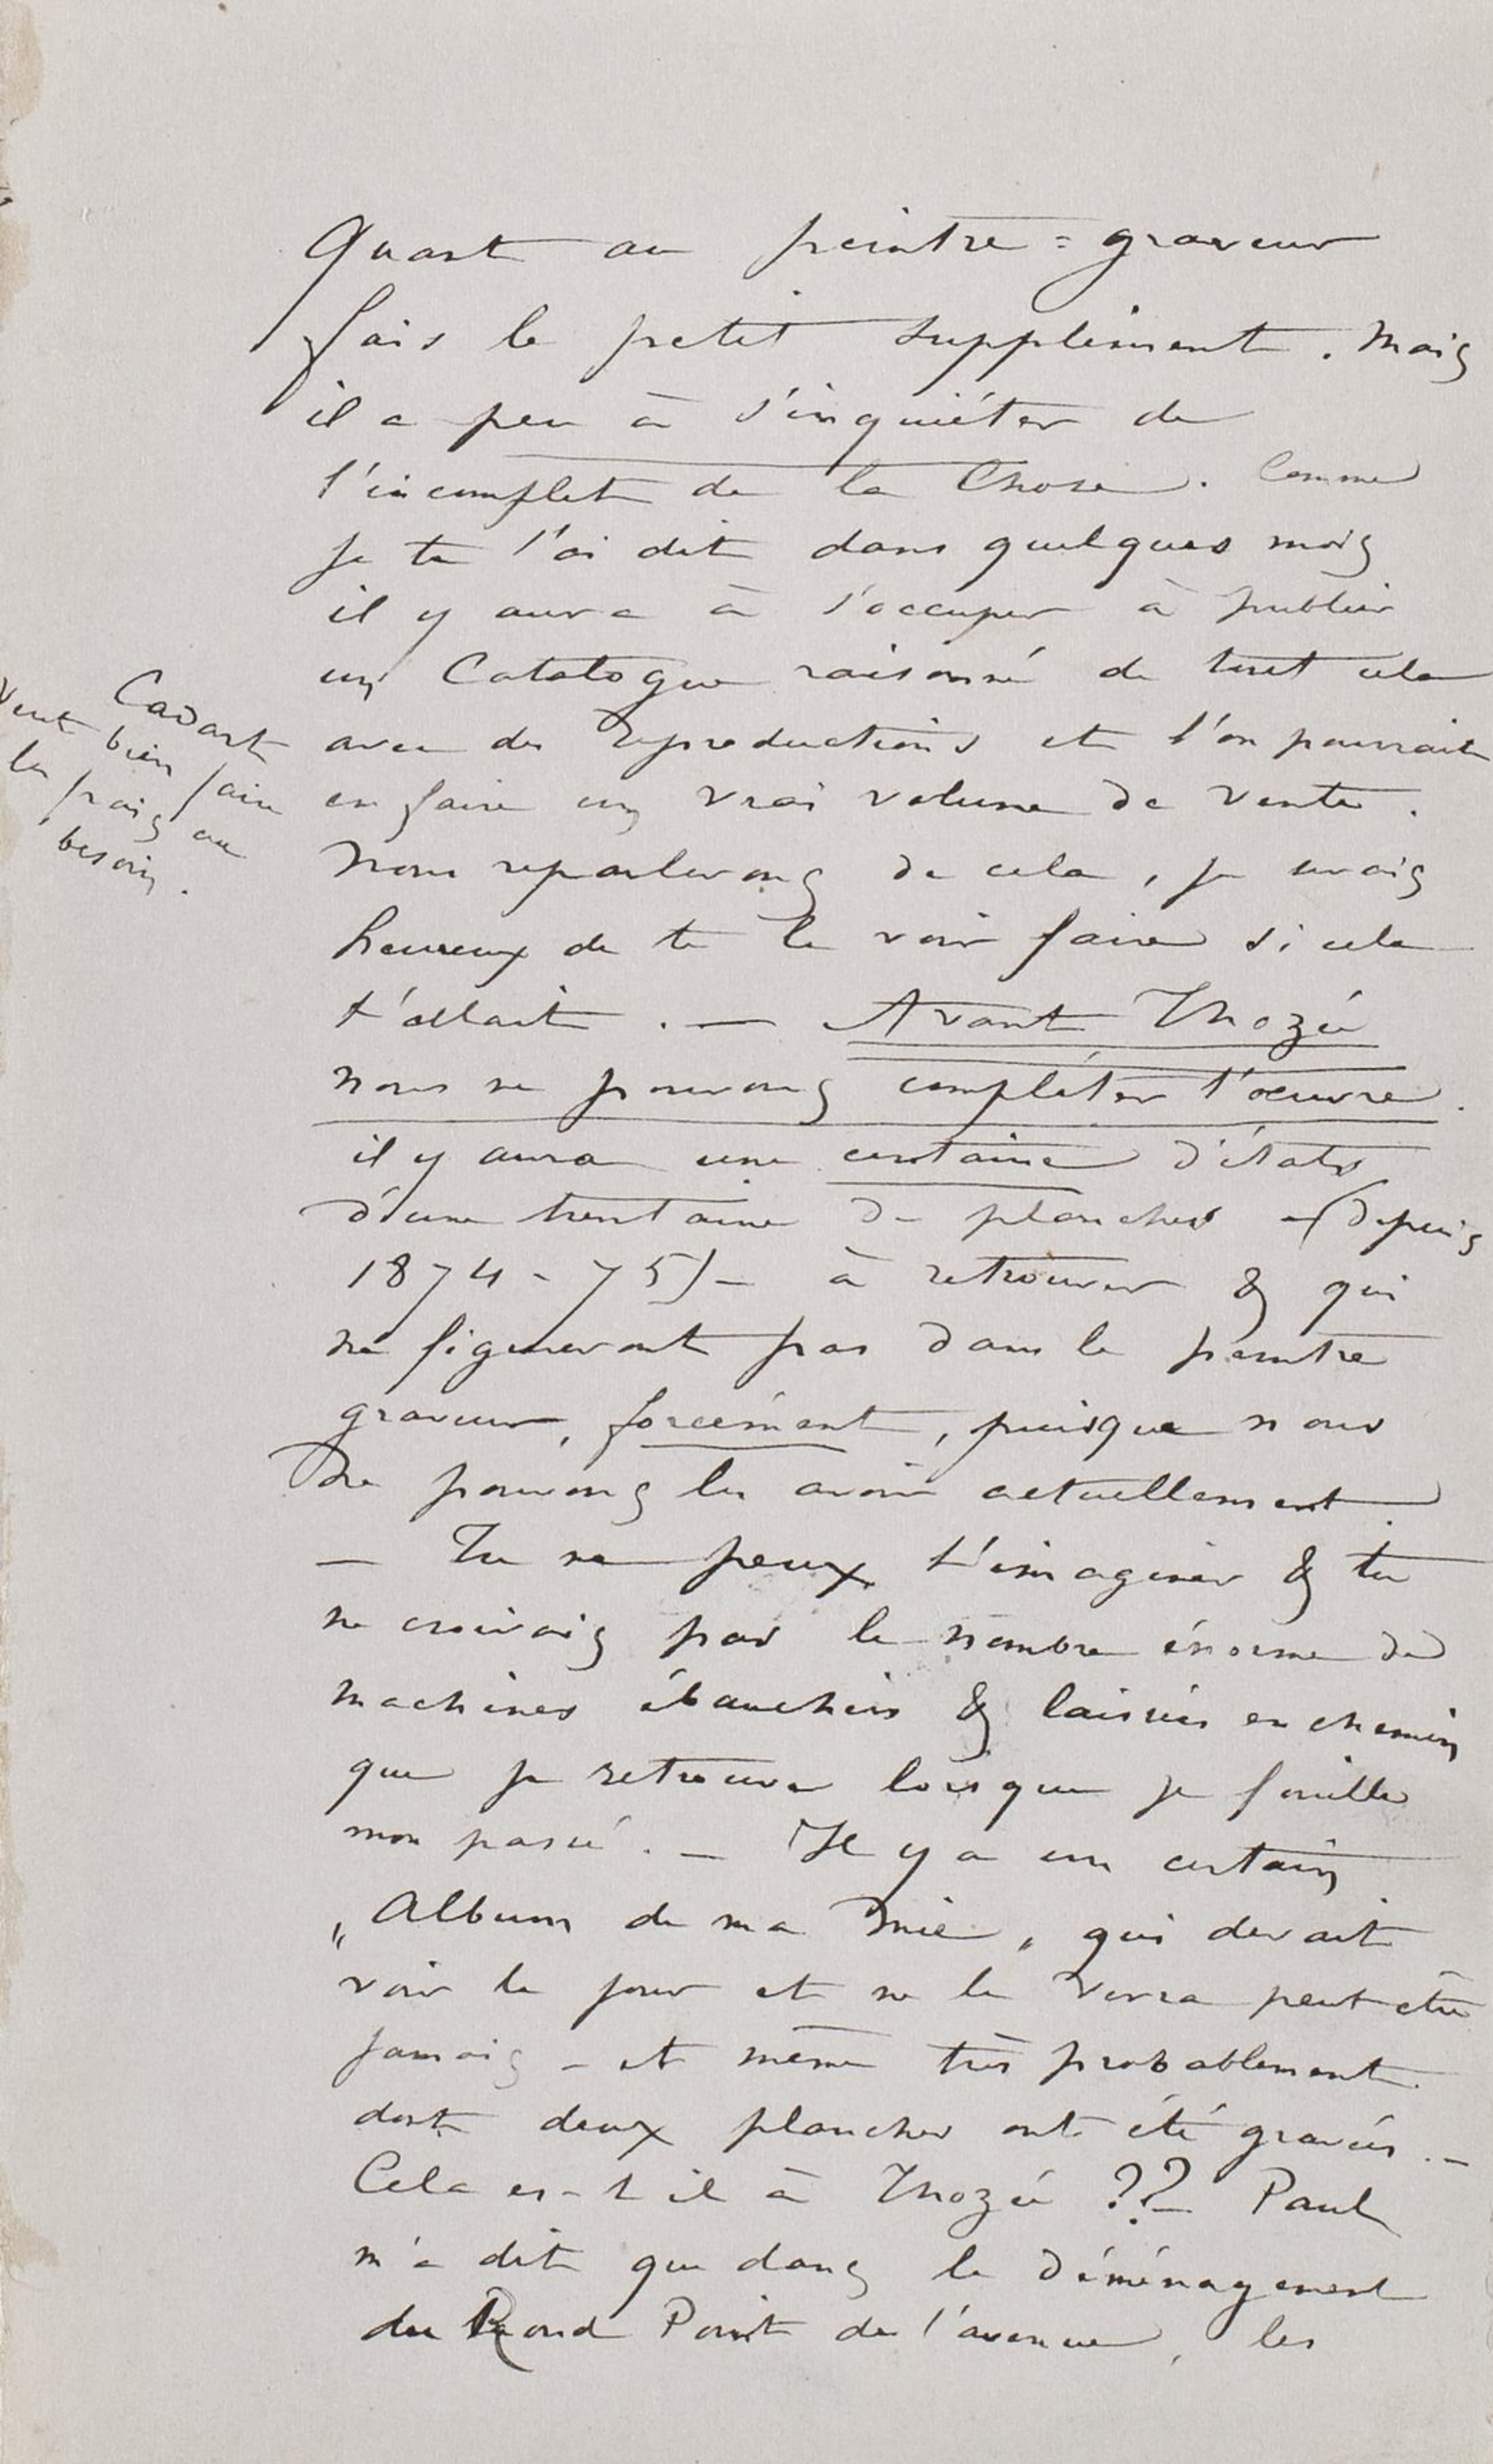 Quant au peintre=graveur
fais le petit supplément. Mais
il a peu à s'inquiéter de
l'incomplet de la Chose. Comme
je te l'ai dit dans quelques mois
il y aura à s'occuper à publier
un Catalogue raisonné de tout cela
avec des reproductions et l'on pourrait
en faire un vrai volume de vente.
Nous reparlerons de cela, je serais
heureux de te le voir faire si cela
t'allait. — Avant Thozée
nous ne pouvons compléter l'oeuvre.
il y aura une centaine d'états
d'une trentaine de planches –(depuis
1874-75)– à retrouver & qui
ne figureront pas dans le peintre
graveur, forcément, puisque nous
ne pouvons les avoir actuellement.
— Tu ne peux t'imaginer & tu
ne croirais pas le nombre énorme de
machines ébauchées & laissées en chemin
que je retrouve lorsque je fouille
mon passé. — Il y a un certain
„Album de ma Mie„ qui devait
voir le jour et ne le verra peut être
jamais – et même très probablement.
dont deux planches ont été gravées. –
Cela es-t il à Thozée ?? Paul
m'a dit que dans le déménagement
du Rond Point de l'avenue, les
Cadart
veut bien faire
les frais au
besoin.